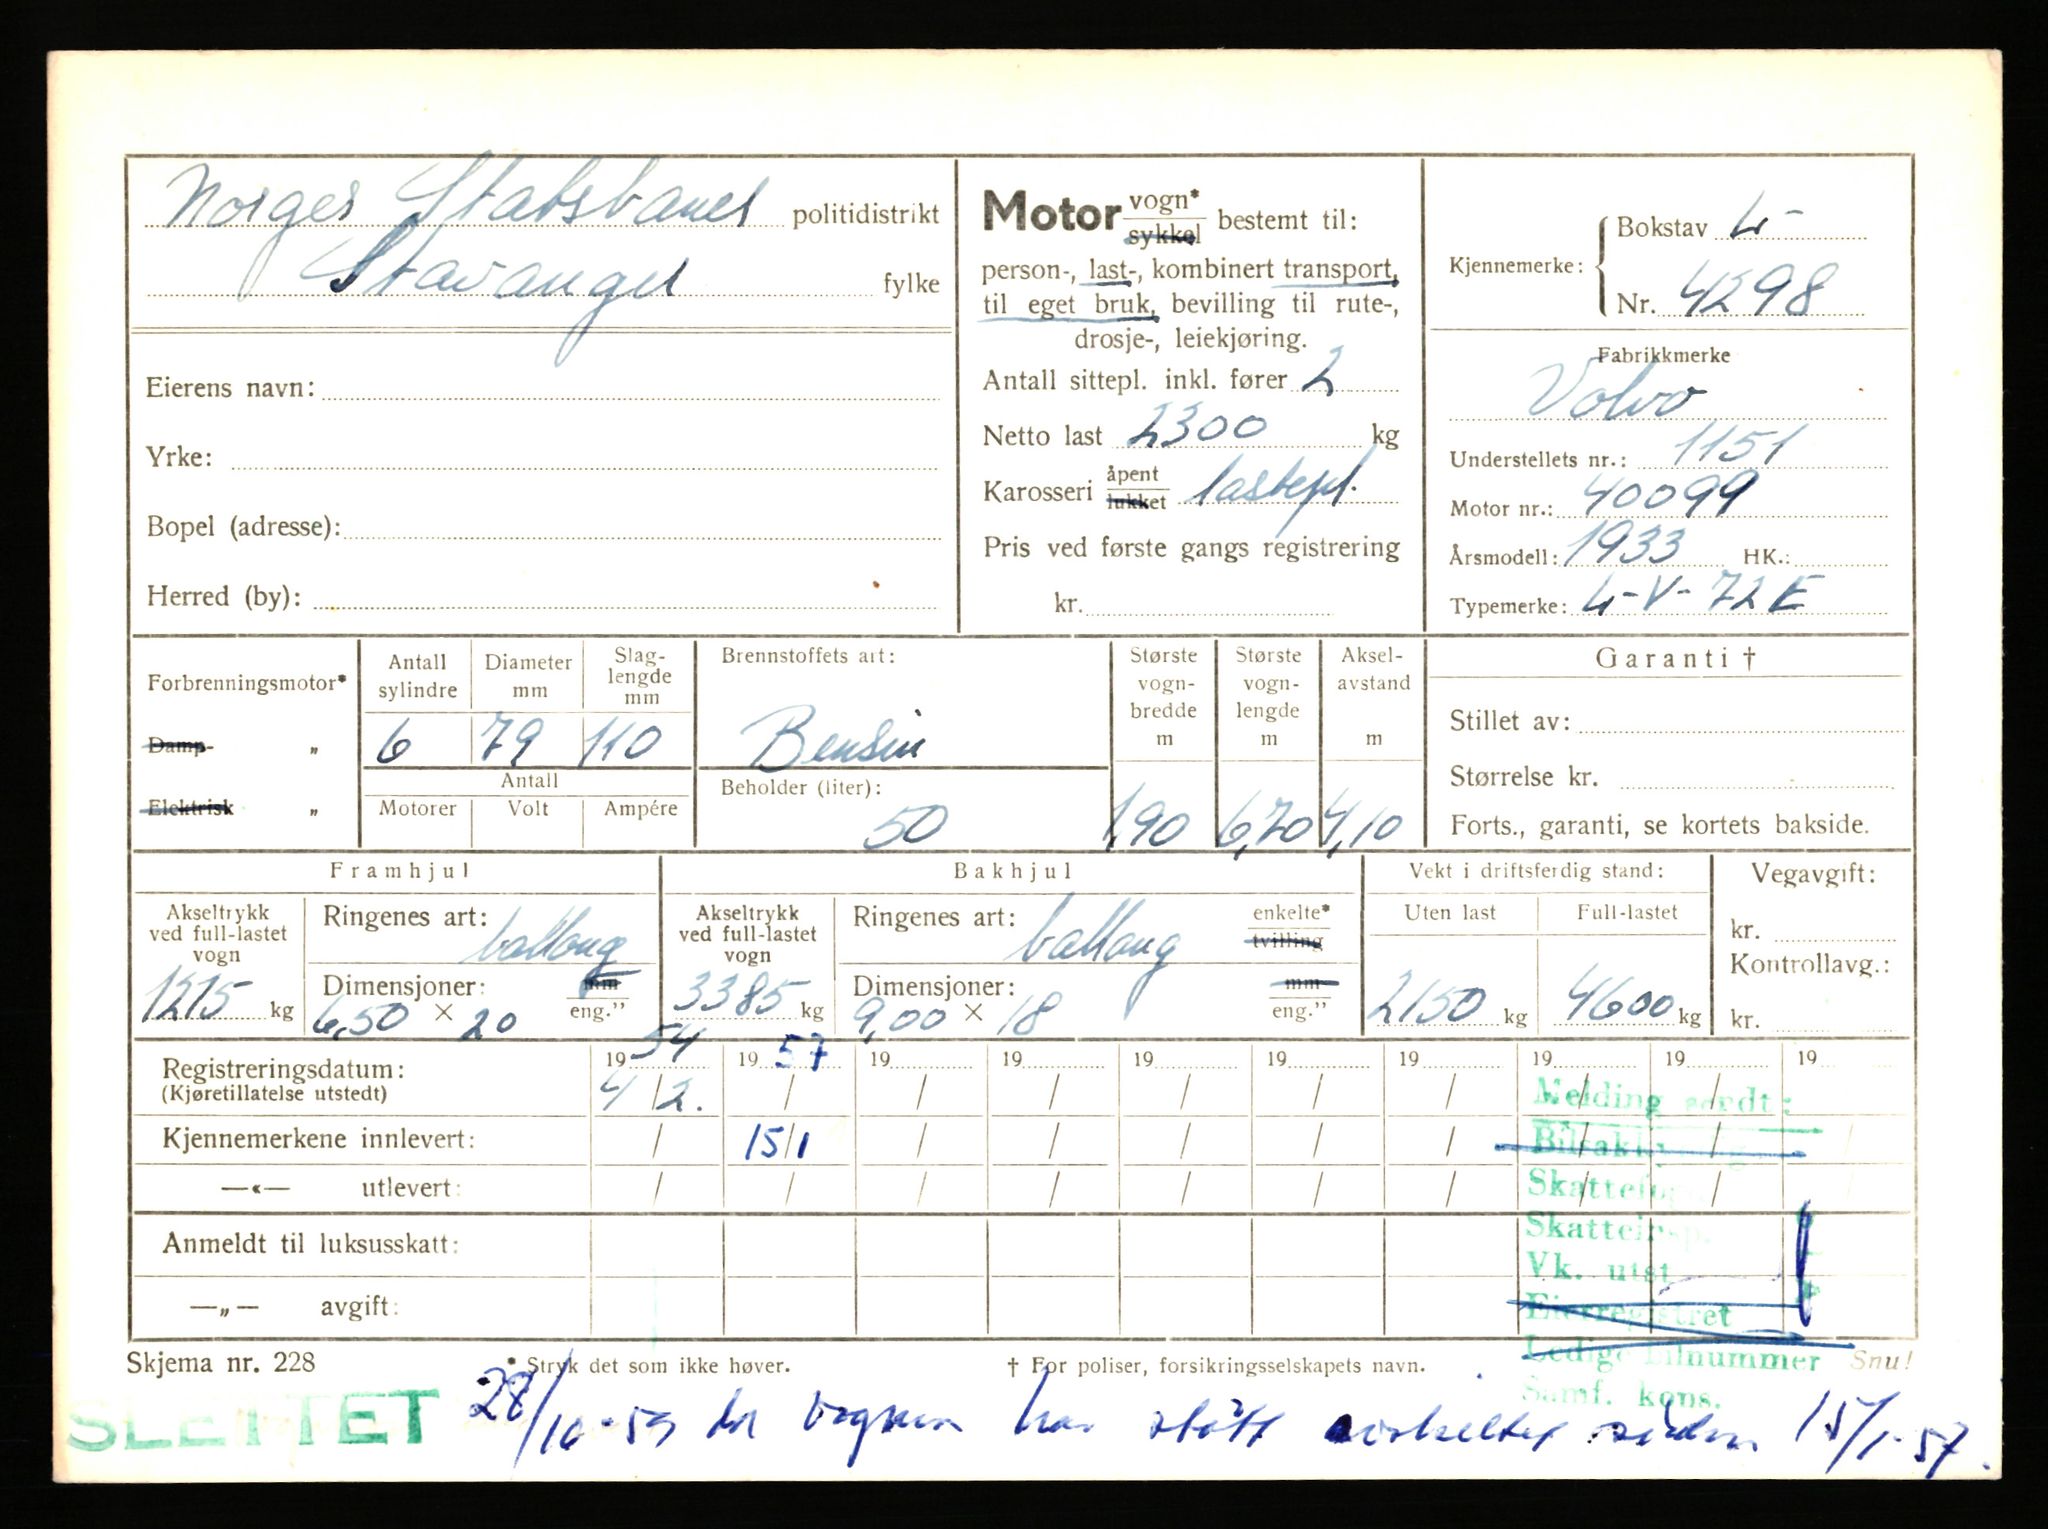 Norges Statsbaner politidistrikt
Stavanger fylke
Eierens navn:
Yrke:
Bopel (adresse):
Herred (by):
Motor vogn*
sykkel bestemt til:
person-, last-, kombinert transport,
til eget bruk, bevilling til rute-,
drosje-, leiekjøring.
Antall sittepl. inkl. fører 2
Netto last 2300 kg
Karosseri åpent lukket lastepl.
Pris ved første gangs registrering
kr.
Kjennemerke: Bokstav L-
Nr. 4298
Fabrikkmerke
Volvo
Understellets nr.: 1151
Motor nr.: 40099
Årsmodell: 1933 HK.:
Typemerke: L-V-72 E
Forbrenningsmotor*
Damp- „
Elektrisk „
Antall sylindre
6
Diameter mm
79
Slag-lengde mm
110
Antall
Motorer Volt Ampére
Brennstoffets art:
Bensin
Beholder (liter):
50
Største vogn-bredde m
1,90
Største vogn-lengde m
6,70
Aksel-avstand m
4,10
Garanti †
Stillet av:
Størrelse kr.
Forts., garanti, se kortets bakside.
Framhjul
Akseltrykk ved full-lastet vogn
1215 kg
Ringenes art: ballong
Dimensjoner: mm
6,50 × 20 eng.”
Bakhjul
Akseltrykk ved full-lastet vogn
3385 kg
Ringenes art: ballong enkelte* tvilling
Dimensjoner: mm
9,00 × 18 eng.”
Vekt i driftsferdig stand:
Uten last Full-lastet
2150 kg 4600 kg
Vegavgift:
kr.
Kontrollavg.:
kr.
Registreringsdatum: 19 54 19 57 19 19 19 19 19 19 19 19
(Kjøretillatelse utstedt) 4/2. / / / / / / / /
Kjennemerkene innlevert: / 15/1 / / / / / / /
—«— utlevert: / / / / / / / / /
Anmeldt til luksusskatt:
—„— avgift:
Melding sendt:
Vk. utst
Eierregistret
Ledige bilnummer
Samf. kons.
Skjema nr. 228 * Stryk det som ikke høver. † For poliser, forsikringsselskapets navn. Snu!
SLETTET 28/10-59 da vognen har stått avskiltet siden 15/1-57.